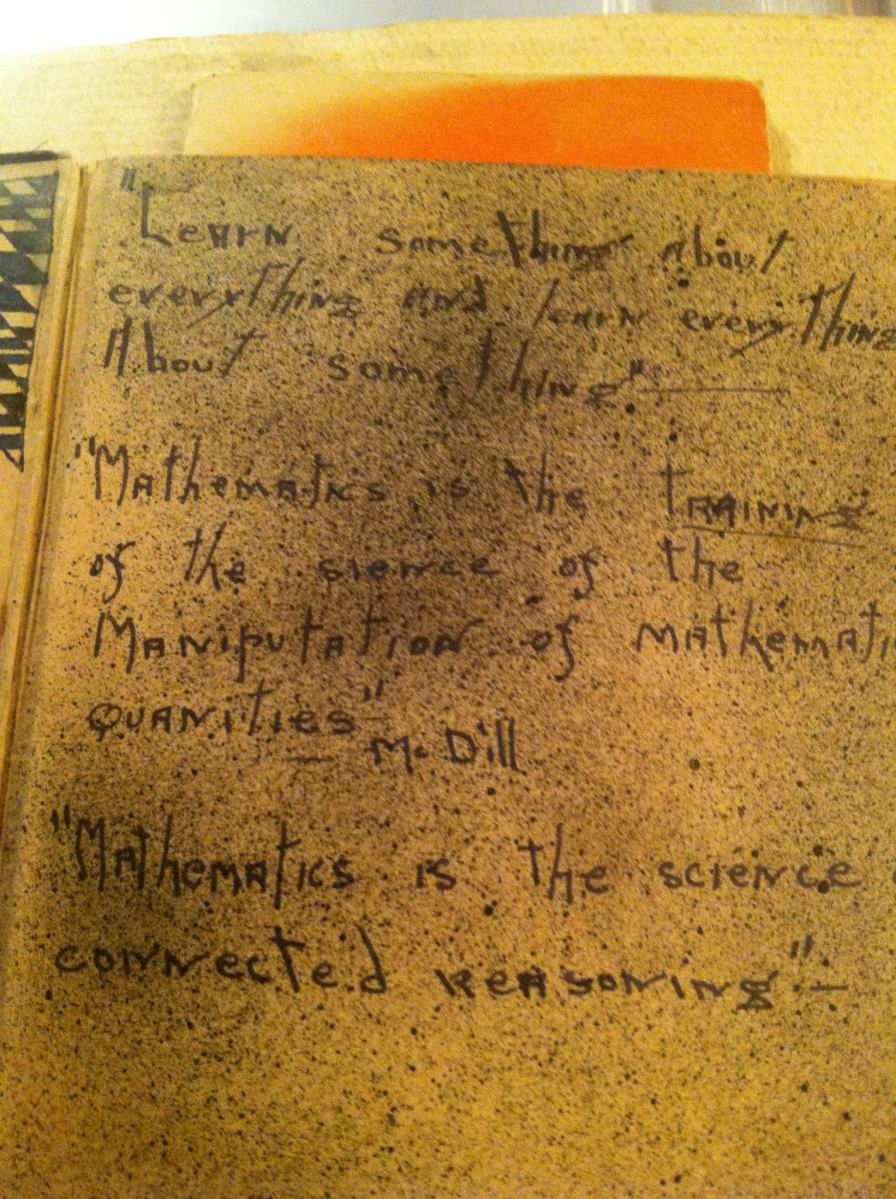 "Learn something about
everything and learn everything
About something"
"Mathematics is the Training
of the sience of the
Maniputation of mathemati
quanities"
Mc Dill
"Mathematics is the science
connected reasoning".